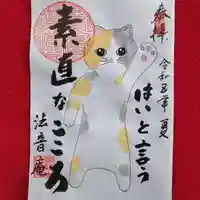 奉拝
令和5年夏
はいと言う
素直な
こころ
法音庵